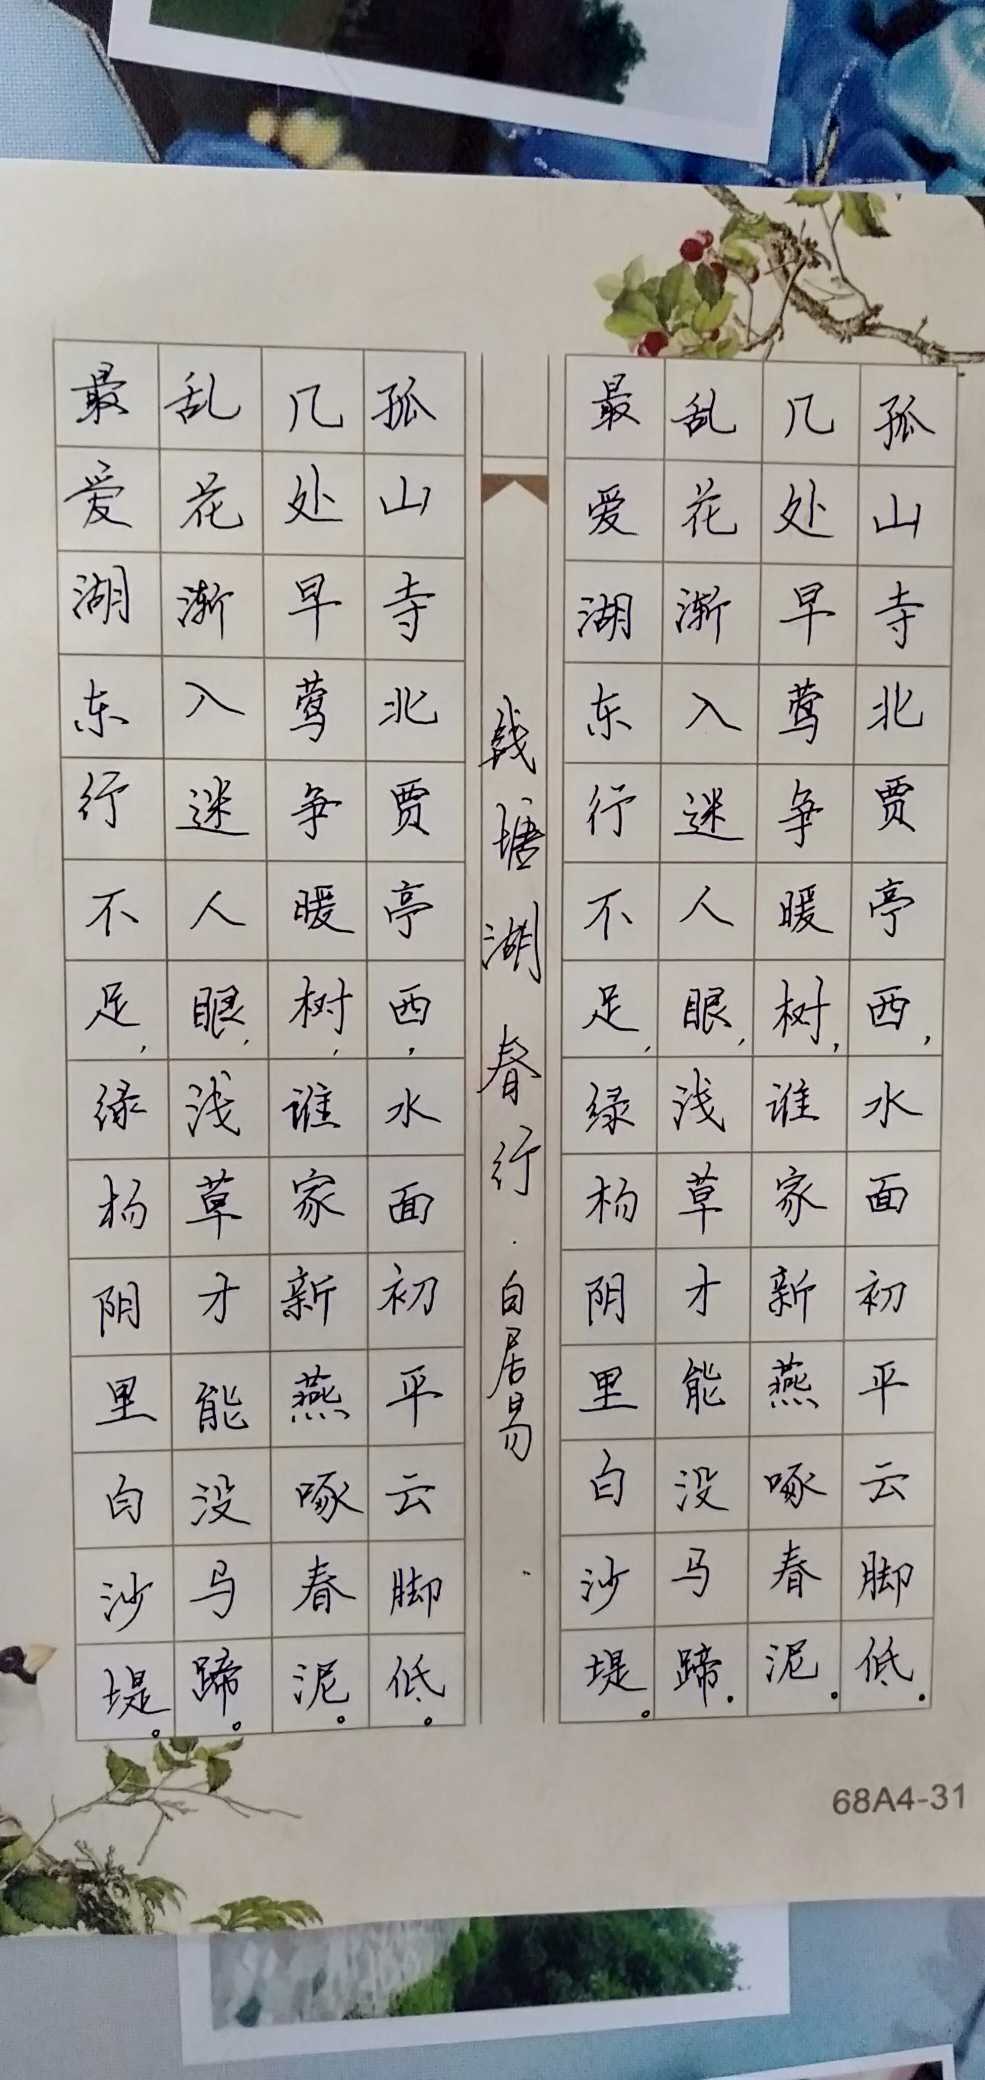 孤山寺北贾亭西，水面初平云脚低。
几处早莺争暖树，谁家新燕啄春泥。
乱花渐入迷人眼，浅草才能没马蹄。
最爱湖东行不足，绿杨阴里白沙堤。
钱塘湖春行·白居易
孤山寺北贾亭西，水面初平云脚低。
几处早莺争暖树，谁家新燕啄春泥。
乱花渐入迷人眼，浅草才能没马蹄。
最爱湖东行不足，绿杨阴里白沙堤。
68A4-31